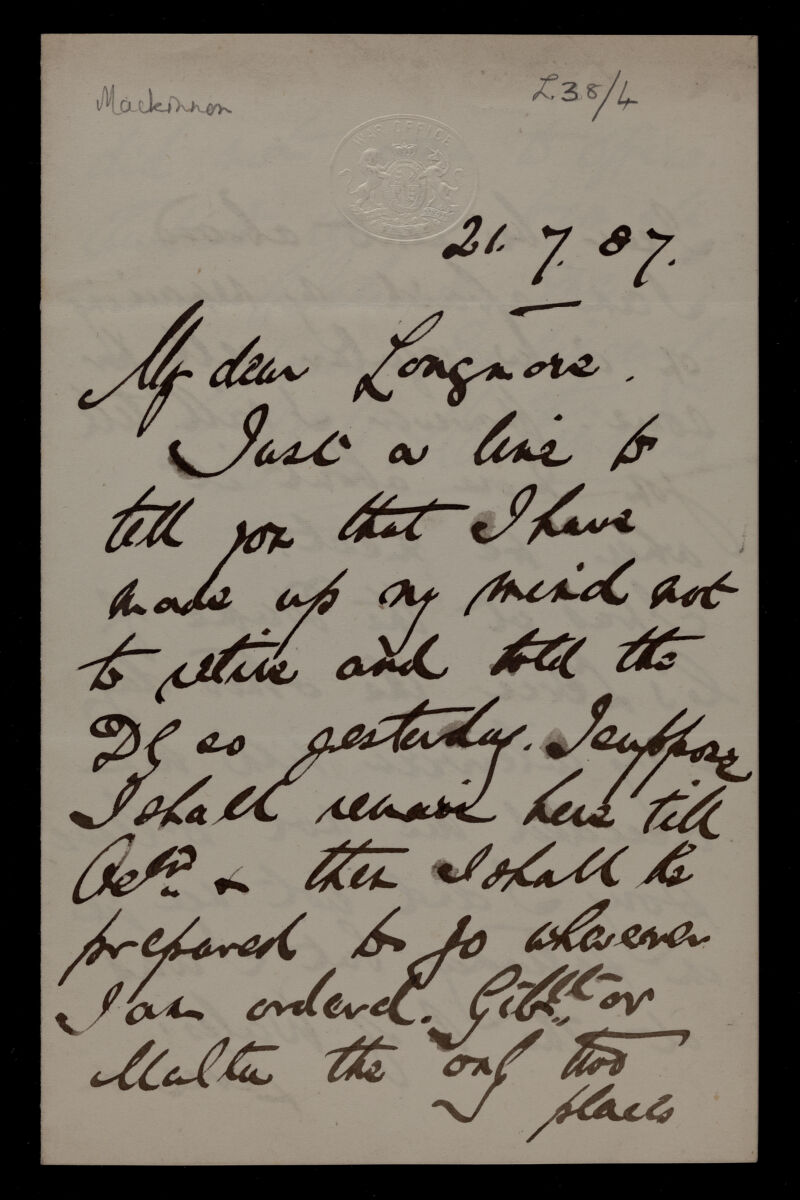 Mackinnon
L38/4
WAR OFFICE
21. 7. 87.
My dear Longmore.
Just a line to
tell you that I have
made up my mind not
to retire and told the
DG so yesterday. I suppose
I shall remain here till
& then I shall be
prepared to go wherever
I am ordered. Gibrlt or
Malta the only two
places